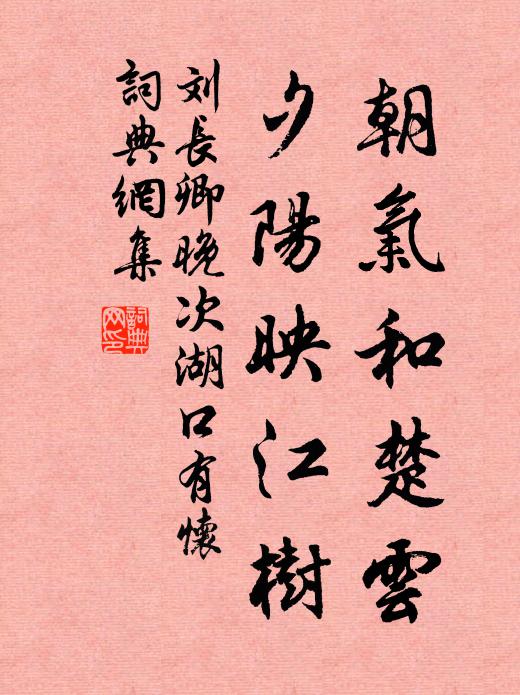 朝氣和楚雲
夕陽映江樹
刘長卿晚次湖口有懷
詞典網集
詞典网印